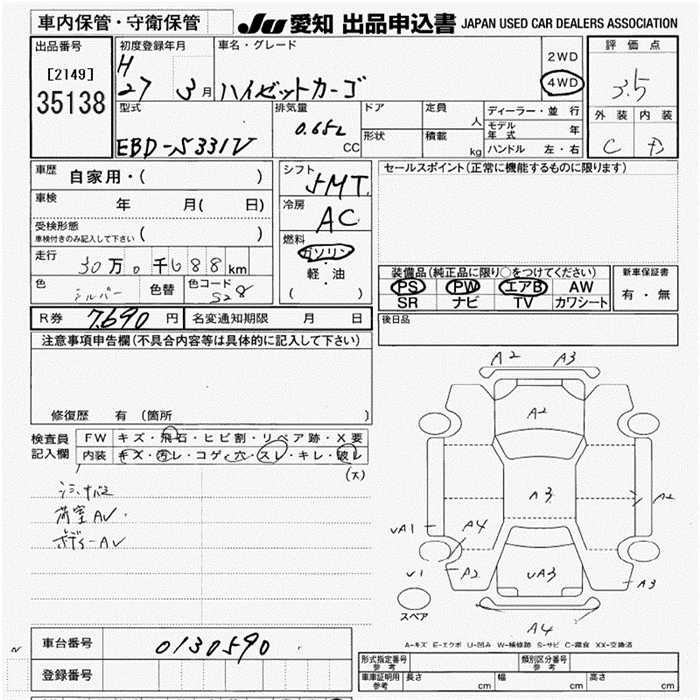 車内保管・守衛保管
JU 愛知 出品申込書 JAPAN USED CAR DEALERS ASSOCIATION
出品番号
[2149]
35138
初度登録年月
H
27 3月
車名・グレード
ハイゼットカーゴ
2WD
4WD
評価点
3.5
外装 内装
C D
型式
EBD-S331V
排気量
0.66L
CC
ドア
形状
定員
人
積載
kg
ディーラー・並行
モデル年式 年
ハンドル 左・右
車歴
自家用・( )
車検
年 月( 日)
受検形態
車検付きのみ記入して下さい ( )
走行
30万0千688km
色
シルバー
色替
色コード
S28
シフト
5MT
冷房
AC
燃料
ガソリン
・
軽・油
( )
セールスポイント(正常に機能するものに限ります)
装備品(純正品に限り○をつけてください)
PS PW エアB AW
SR ナビ TV カワシート
新車保証書
有・無
R券 7,690 円
名変通知期限 月 日
後日品
注意事項申告欄(不具合内容等は具体的に記入して下さい)
修復歴 有(箇所 )
検査員
記入欄
FW キズ・飛石・ヒビ割・リペア跡・X要
内装 キズ・汚レ・コゲ・穴・スレ・キレ・破レ
(大)
荷室AV.
ボディーAV
A2 A3
A2
A3
A2
UA1
A4
U1
A2
UA3
A3
A4
スペア
A-キズ E-エクボ U-凹み W-補修跡 S-サビ C-腐食 XX-交換済
車台番号
0130590
登録番号
形式指定番号
参考
類別区分番号
参考
車庫証明用
参考
長さ cm
幅 cm
高さ cm